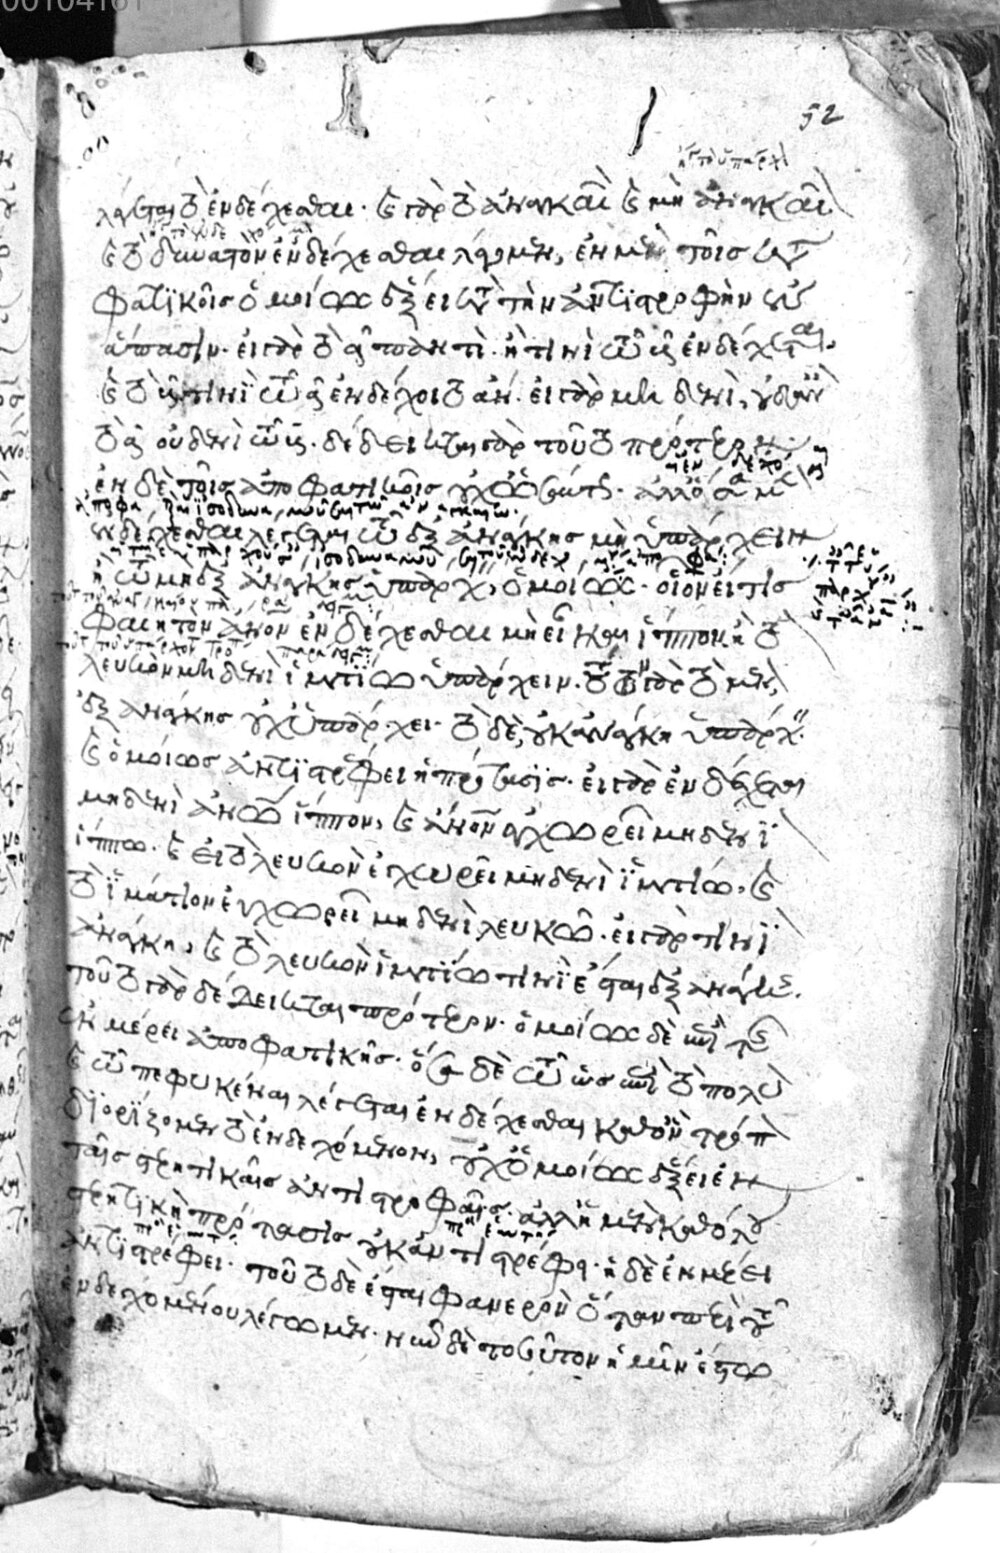 λέγεται τὸ ἐνδέχεσθαι· καὶ γὰρ τὸ ἀναγκαῖ καὶ μὴ ἀναγκαῖ
καὶ τὸ δυνατὸν ἐνδέχεσθαι λέγομεν, ἐν μὲν τοῖς κατα
φατικοῖς ὁμοίως ἕξει κατὰ τὴν ἀντιστροφὴν ἐν
ἅπασιν· εἰ γὰρ τὸ α παντὶ ἢ τινὶ τῶ β ἐνδέχεται·
καὶ τὸ β τινὶ τῶ α ἐνδέχοιτο ἄν· εἰ γὰρ μηδενὶ, οὐδ' ἂν
τὸ α οὐδενὶ τῶ β· δέδεικται γὰρ τοῦτο πρότερον·
ἐν δὲ τοῖς ἀποφατικοῖς οὐχ ὡσαύτως· ἀλλ' ὅσα μὲν
ἐνδέχεσθαι λέγεται τῶ ἐξ ἀνάγκης μὴ ὑπάρχειν
ἢ τῶ μὴ ἐξ ἀνάγκης ὑπάρχ, ὁμοίως· οἷον εἴ τις
φαίη τὸν ἄνον ἐνδέχεσθαι μὴ εἶναι ἵππον ἢ τὸ
λευκὸν μηδενὶ ἱματίω ὑπάρχειν· τούτων γὰρ τὸ μὲν,
ἐξ ἀνάγκης οὐχ ὑπάρχει· τὸ δὲ, οὐκ ἀνάγκη ὑπάρχ·
καὶ ὁμοίως ἀντιστρέφει ἡ πρότασις· εἰ γὰρ ἐνδέχεται
μηδενὶ ἀνω ἵππον, καὶ ἄνον ἐγχωρεῖ μηδενὶ
ἵππω· καὶ εἰ τὸ λευκὸν ἐγχωρεῖ μηδενὶ ἱματίω· καὶ
τὸ ἱμάτιον ἐγχωρεῖ μηδενὶ λευκῶ· εἰ γὰρ τινὶ
ἀνάγκη, καὶ τὸ λευκὸν ἱματίω τινὶ ἔσται ἐξ ἀνάγκης.
τοῦτο γὰρ δέδεικται πρότερον· ὁμοίως δὲ καὶ ἐπὶ τῆς
ἐν μέρει ἀποφατικῆς· ὅσα δὲ τῶ ὡς ἐπὶ τὸ πολὺ
καὶ τῶ πεφυκέναι λέγεται ἐνδέχεσθαι καθ' ὃν τρόπ
διορίζομεν τὸ ἐνδεχόμενον, οὐχ ὁμοίως ἕξει ἐν
ταῖς στερητικαῖς ἀντιστροφαῖς· ἀλλ' ἡ μὲν καθόλου
στερητικὴ πρότασις οὐκ ἀντιστρέφει· ἡ δὲ ἐν μέρει
ἀντιστρέφει· τοῦτο δὲ ἔσται φανερὸν ὅταν περὶ τοῦ
ἐνδεχομένου λέγωμεν· νῦν δὲ τοσοῦτον ἡμῖν ἔστω